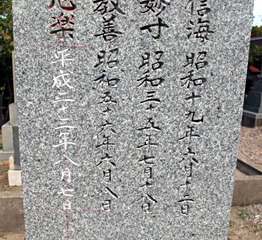 信海 昭和十九年六月十二日
妙寸 昭和三五年七月十八
教善 昭和五十六年六月八日
楽 平成二十二年八月七日